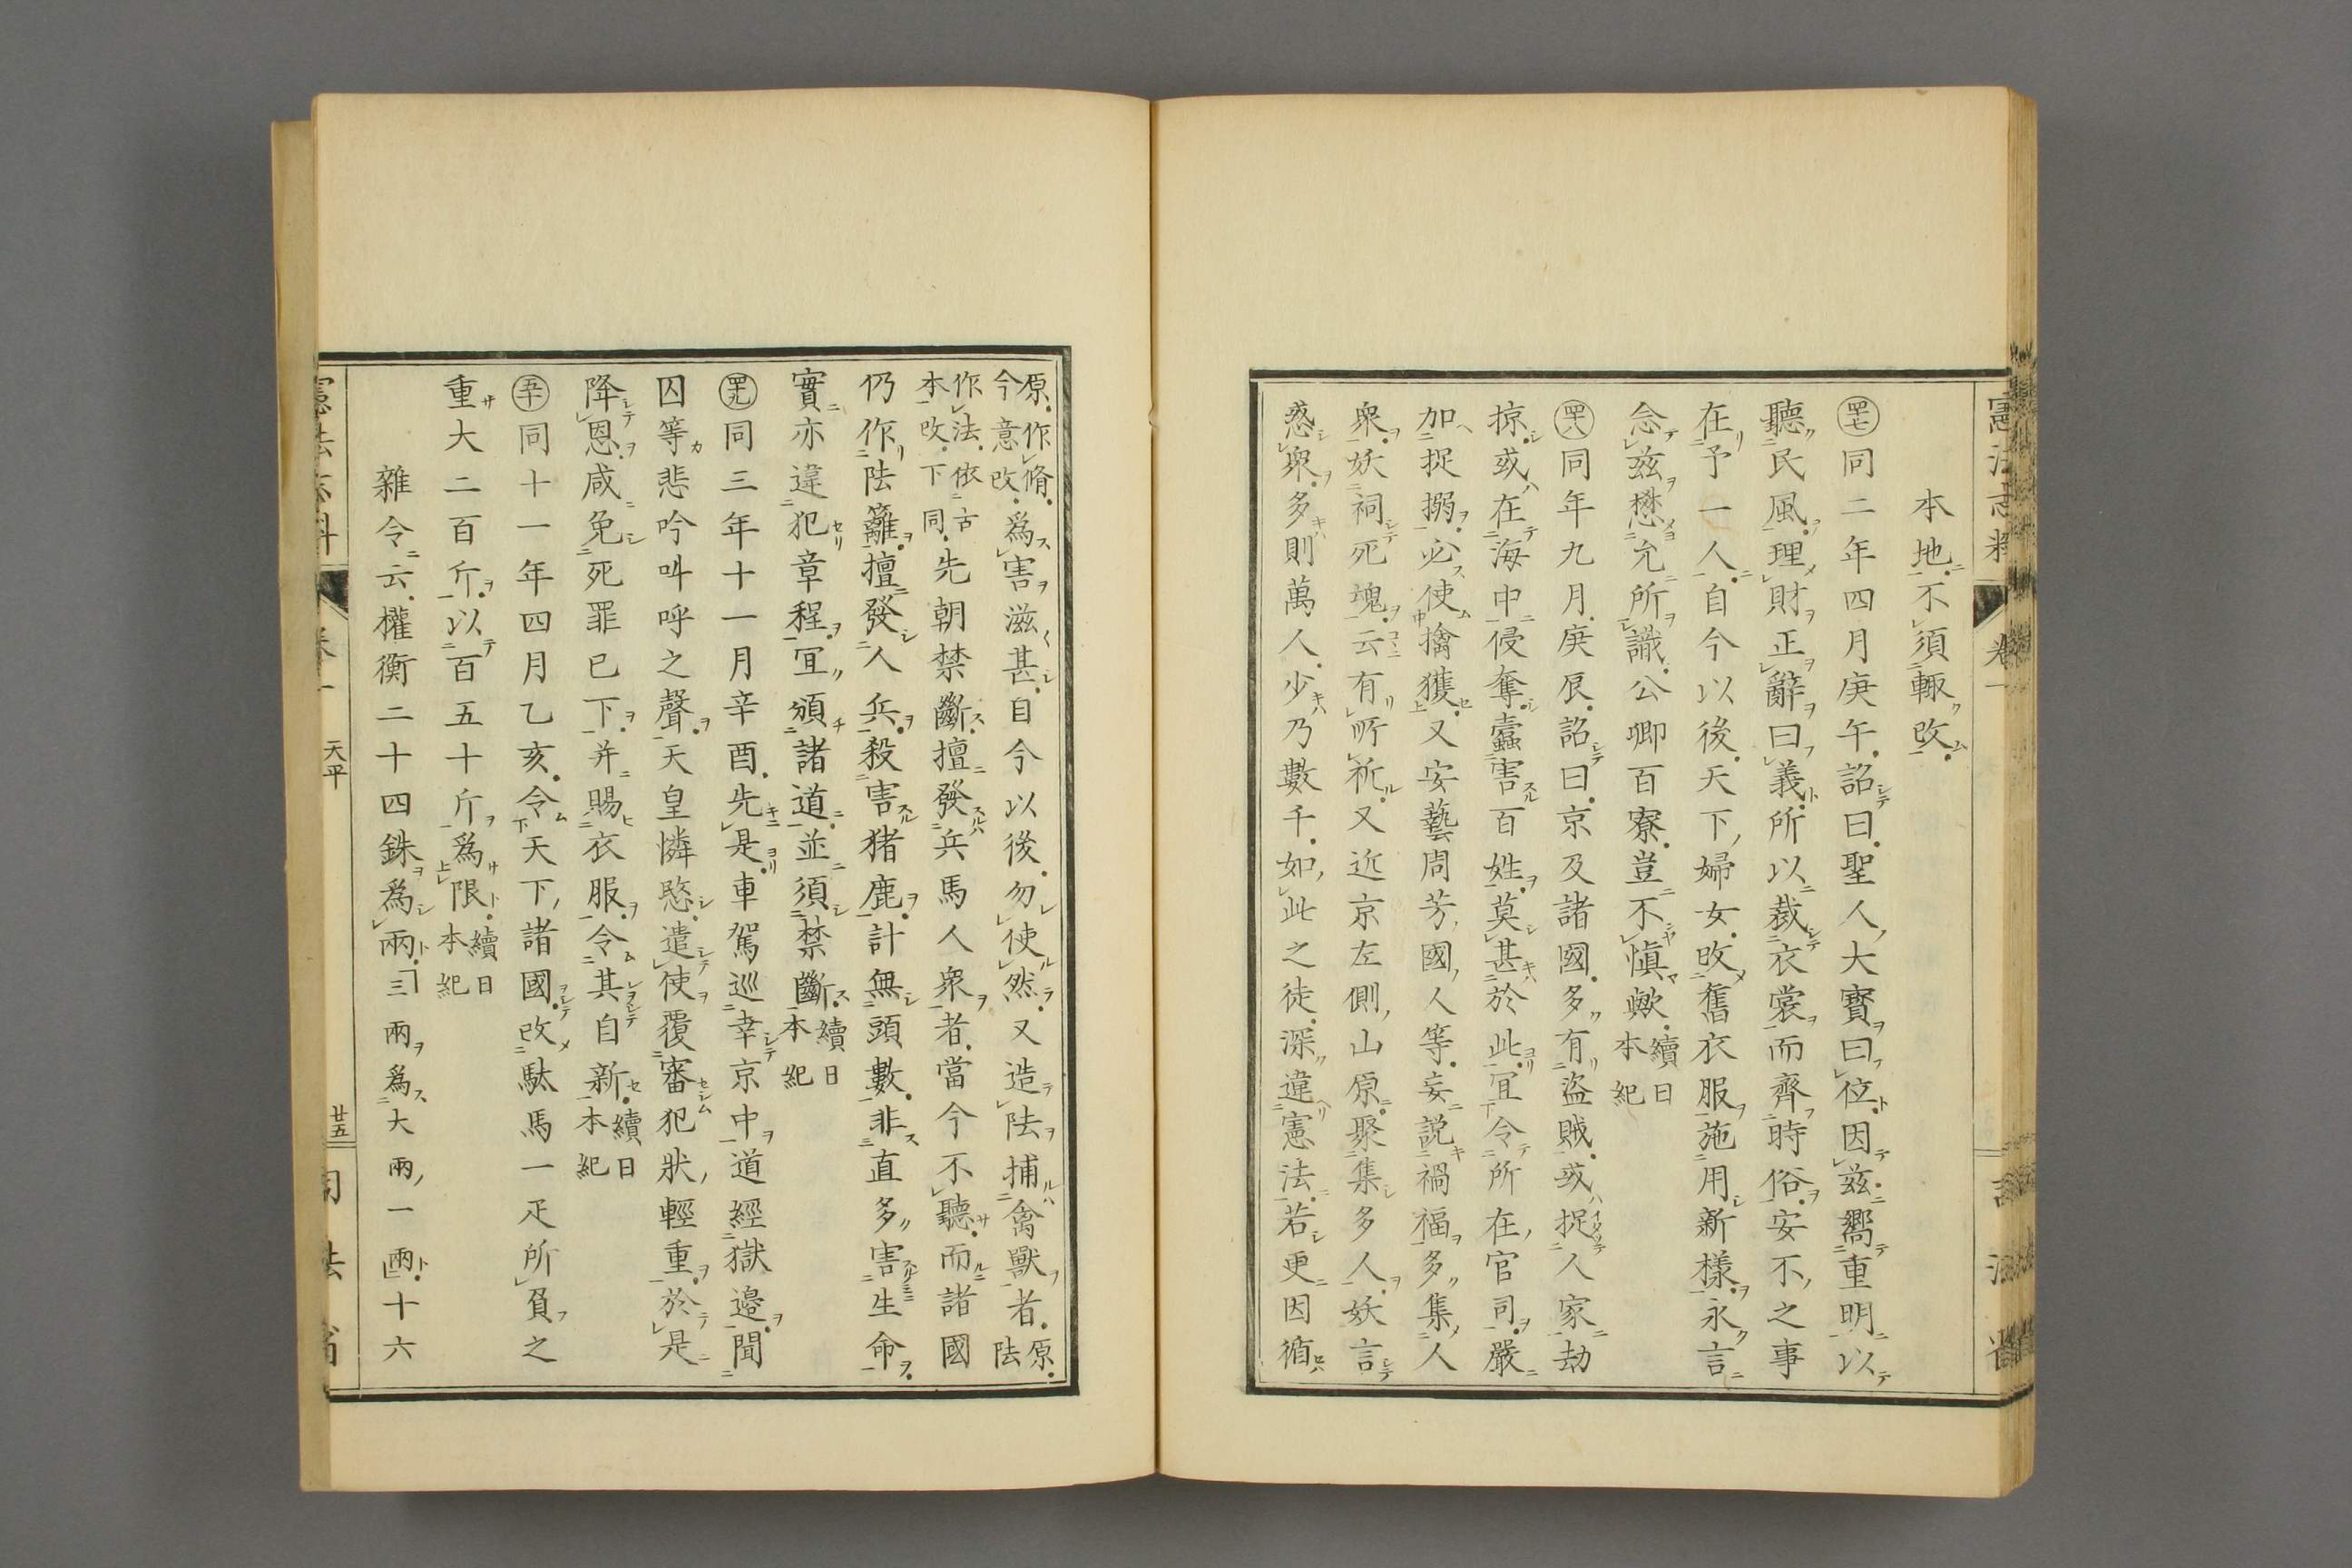 憲法志料 卷一 司法省
本地不須輙改
㊼同二年四月庚午詔曰聖人大寳曰位因茲嚮重明以
聽民風理財正辭曰義所以裁衣裳而齊時俗安不之事
在予一人自今以後天下婦女改舊衣服施用新樣永言
念茲懋允所識公卿百寮豈不愼歟續日本紀
㊽同年九月庚辰詔曰京及諸國多有盜賊或捉人家劫
掠或在海中侵奪蠧害百姓莫甚於此冝令所在官司嚴
加捉搦必使擒獲又安藝周芳國人等妄説禍福多集人
衆妖祠死魂云有所祈又近京左側山原聚集多人妖言
惑衆多則萬人少乃數千如此之徒深違憲法若更因循
原作脩今意改爲害滋甚自今以後勿使然又造阹捕禽獸者原阹
作法依古本改下同先朝禁斷擅發兵馬人衆者當今不聽而諸國
仍作阹籬擅發人兵殺害猪鹿計無頭數非直多害生命
實亦違犯章程冝頒諸道並須禁斷續日本紀
㊾同三年十一月辛酉先是車駕巡幸京中道經獄邉聞
囚等悲吟叫呼之聲天皇憐愍遣使覆審犯狀輕重於是
降恩咸免死罪已下并賜衣服令其自新續日本紀
㊿同十一年四月乙亥令天下諸國改駄馬一疋所負之
重大二百斤以百五十斤爲限續日本紀
雜令云權衡二十四銖爲兩三兩爲大兩一兩十六
憲法志料 卷一 天平 廿五 司法省